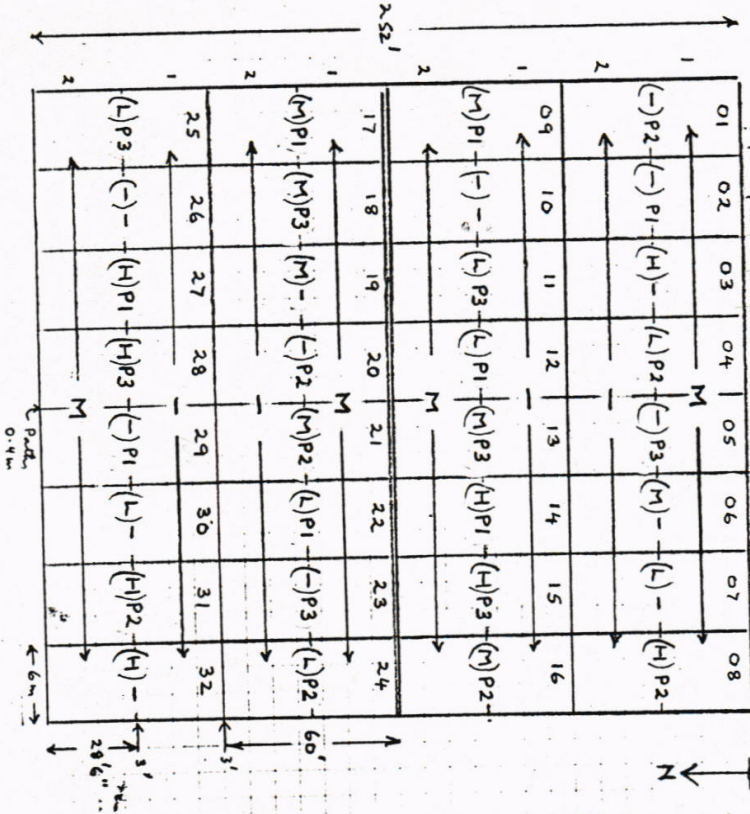 252'
01 02 03 04 05 06 07 08
1 M
(-)P2 (-)P1 (H)- (L)P2 (-)P3 (M)- (L)- (H)P2
2 I
09 10 11 12 13 14 15 16
1 I
(M)P1 (-)- (L)P3 (L)P1 (M)P3 (H)P1 (H)P3 (M)P2
2 M
17 18 19 20 21 22 23 24
1 M
(M)P1 (M)P3 (M)- (-)P2 (M)P2 (L)P1 (-)P3 (L)P2
2 I
25 26 27 28 29 30 31 32
1 I
(L)P3 (-)- (H)P1 (H)P3 (-)P1 (L)- (H)P2 (H)-
2 M
Path
0.4m
6m
60'
3'
3'
28'6"
N